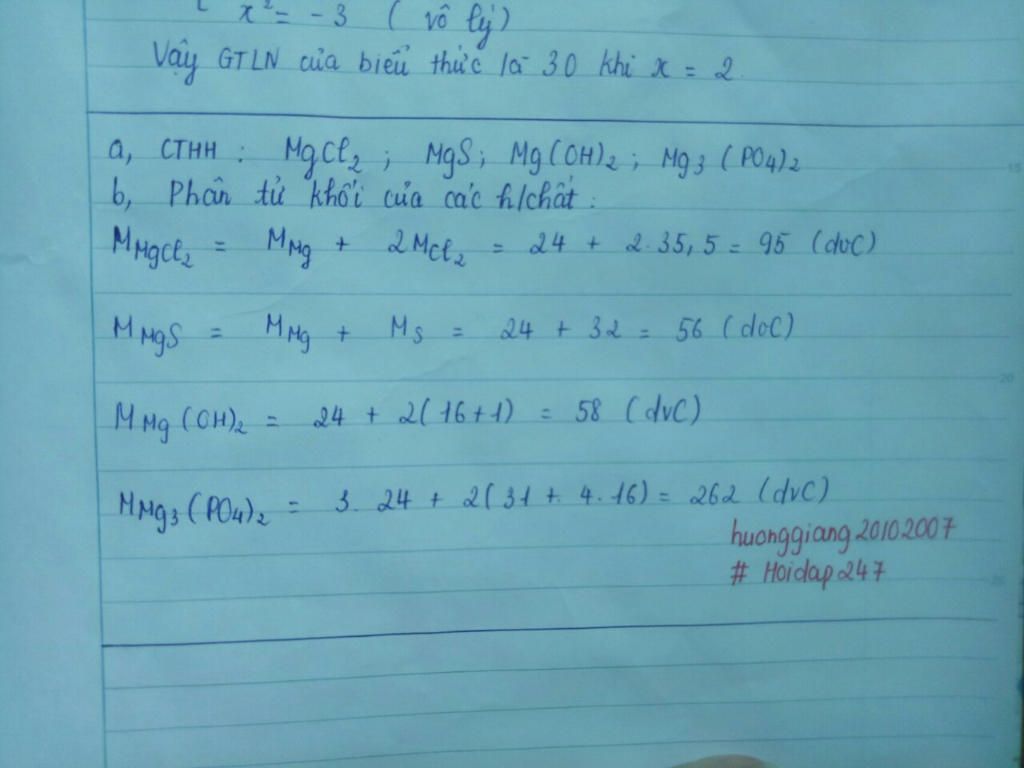 x² = - 3 ( vô lý)
Vậy GTLN của biểu thức là 30 khi x = 2.
a, CTHH : MgCl₂ ; MgS; Mg(OH)₂ ; Mg₃(PO₄)₂
b, Phân tử khối của các h/chất :
M MgCl₂ = M Mg + 2M Cl₂ = 24 + 2.35,5 = 95 (đvC)
M MgS = M Mg + M S = 24 + 32 = 56 (đvC)
M Mg(OH)₂ = 24 + 2(16+1) = 58 (đvC)
M Mg₃(PO₄)₂ = 3. 24 + 2(31 + 4.16) = 262 (đvC)
huonggiang20102007
# Hoidap247